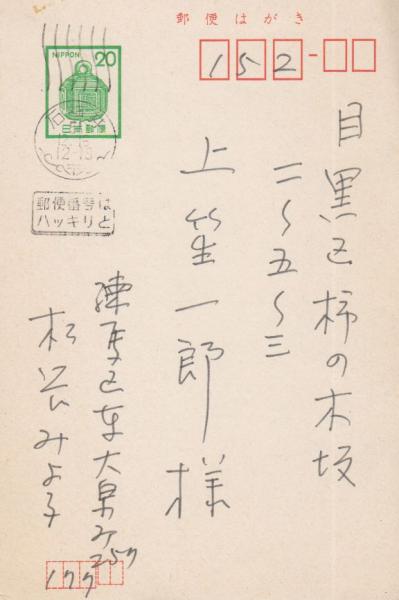 郵便はがき
152-
NIPPON 20
日本郵便
郵便番号は
ハッキリと
目黒区柿の木坂
二〜五〜三
上笙一郎様
練馬区東大泉
松谷みよ子
177